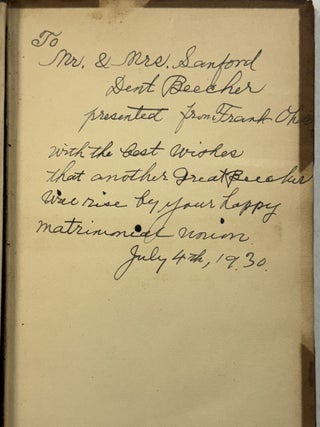 To
Mr. & Mrs. Sanford
Dent Beecher
presented from Frank
with the best wishes
that another great Beecher
was rise by your happy
matrimonial union
July 4th, 1930.